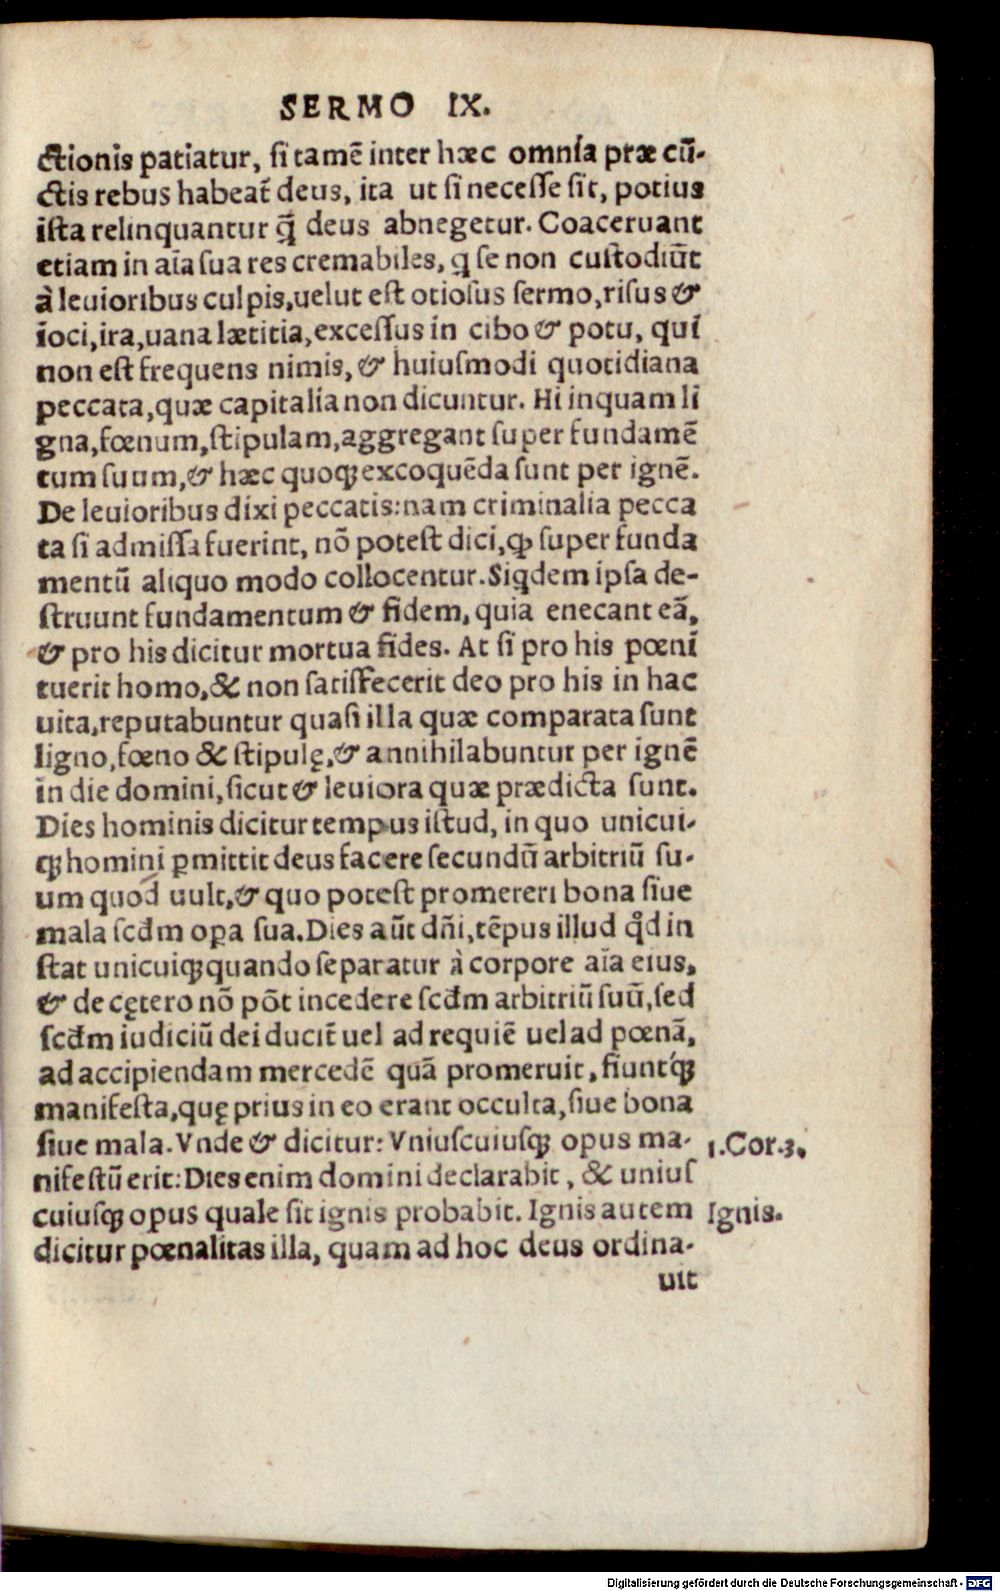 SERMO IX.
ctionis patiatur, ſi tamē inter hæc omnía præ cū-
ctis rebus habeat̃ deus, ita ut ſi neceſſe ſit, potius
iſta relinquantur q̃ deus abnegetur. Coaceruant
etiam in aīa ſua res cremabiles, ꝗ ſe non cuſtodiūt
à leuioribus culpis, uelut eſt otioſus ſermo, riſus &
ioci, ira, uana lætitia, exceſſus in cibo & potu, qui
non eſt frequens nimis, & huiuſmodi quotidiana
peccata, quæ capitalia non dicuntur. Hi inquam li
gna, fœnum, ſtipulam, aggregant ſuper fundamē
tum ſuum, & hæc quoqꝫ excoquēda ſunt per ignē.
De leuioribus dixi peccatis: nam criminalia pecca
ta ſi admiſſa fuerint, nō poteſt dici, ꝙ ſuper funda
mentū aliquo modo collocentur. Siꝗdem ipſa de-
ſtruunt fundamentum & fidem, quia enecant eā,
& pro his dicitur mortua fides. At ſi pro his pœni
tuerit homo, & non ſatiſfecerit deo pro his in hac
uita, reputabuntur quaſi illa quæ comparata ſunt
ligno, fœno & ſtipulę, & annihilabuntur per ignē
in die domini, ſicut & leuiora quæ prædicta ſunt.
Dies hominis dicitur tempus iſtud, in quo unicui-
qꝫ homini ꝑmittit deus facere ſecundū arbitriū ſu-
um quod uult, & quo poteſt promereri bona ſiue
mala ſcd̃m oꝑa ſua. Dies aūt dñi, tēpus illud qͦd in
ſtat unicuiqꝫ quando ſeparatur à corpore aīa eius,
& de cętero nō pōt incedere ſcd̃m arbitriū ſuū, ſed
ſcd̃m iudiciū dei ducit̃ uel ad requiē uel ad pœnā,
ad accipiendam mercedē quā promeruit, fiuntq́ꝫ
manifeſta, quę prius in eo erant occulta, ſiue bona
ſiue mala. Vnde & dicitur: Vniuſcuiuſqꝫ opus ma-
nifeſtū erit: Dies enim domini declarabit, & uniuſ
cuiuſqꝫ opus quale ſit ignis probabit. Ignis autem
dicitur pœnalitas illa, quam ad hoc deus ordina-
uit
1.Cor.3.
Ignis.
Digitalisierung gefördert durch die Deutsche Forschungsgemeinschaft - DFG